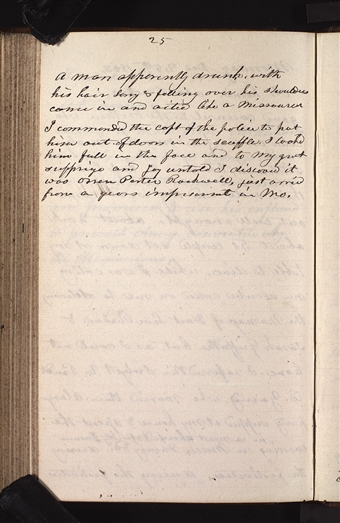 25
A man apperently drunk, with
his hair long & folling over his shoulders
come in and acted like a Missourer
I commended the capt of the police to put
him out of doors in the scuffle, I looked
him full in the face and to My grat
supprize and Joy untold I discovred it
was Orren Porter Rockwell, just arrived
from a years imprisonment in Mo.